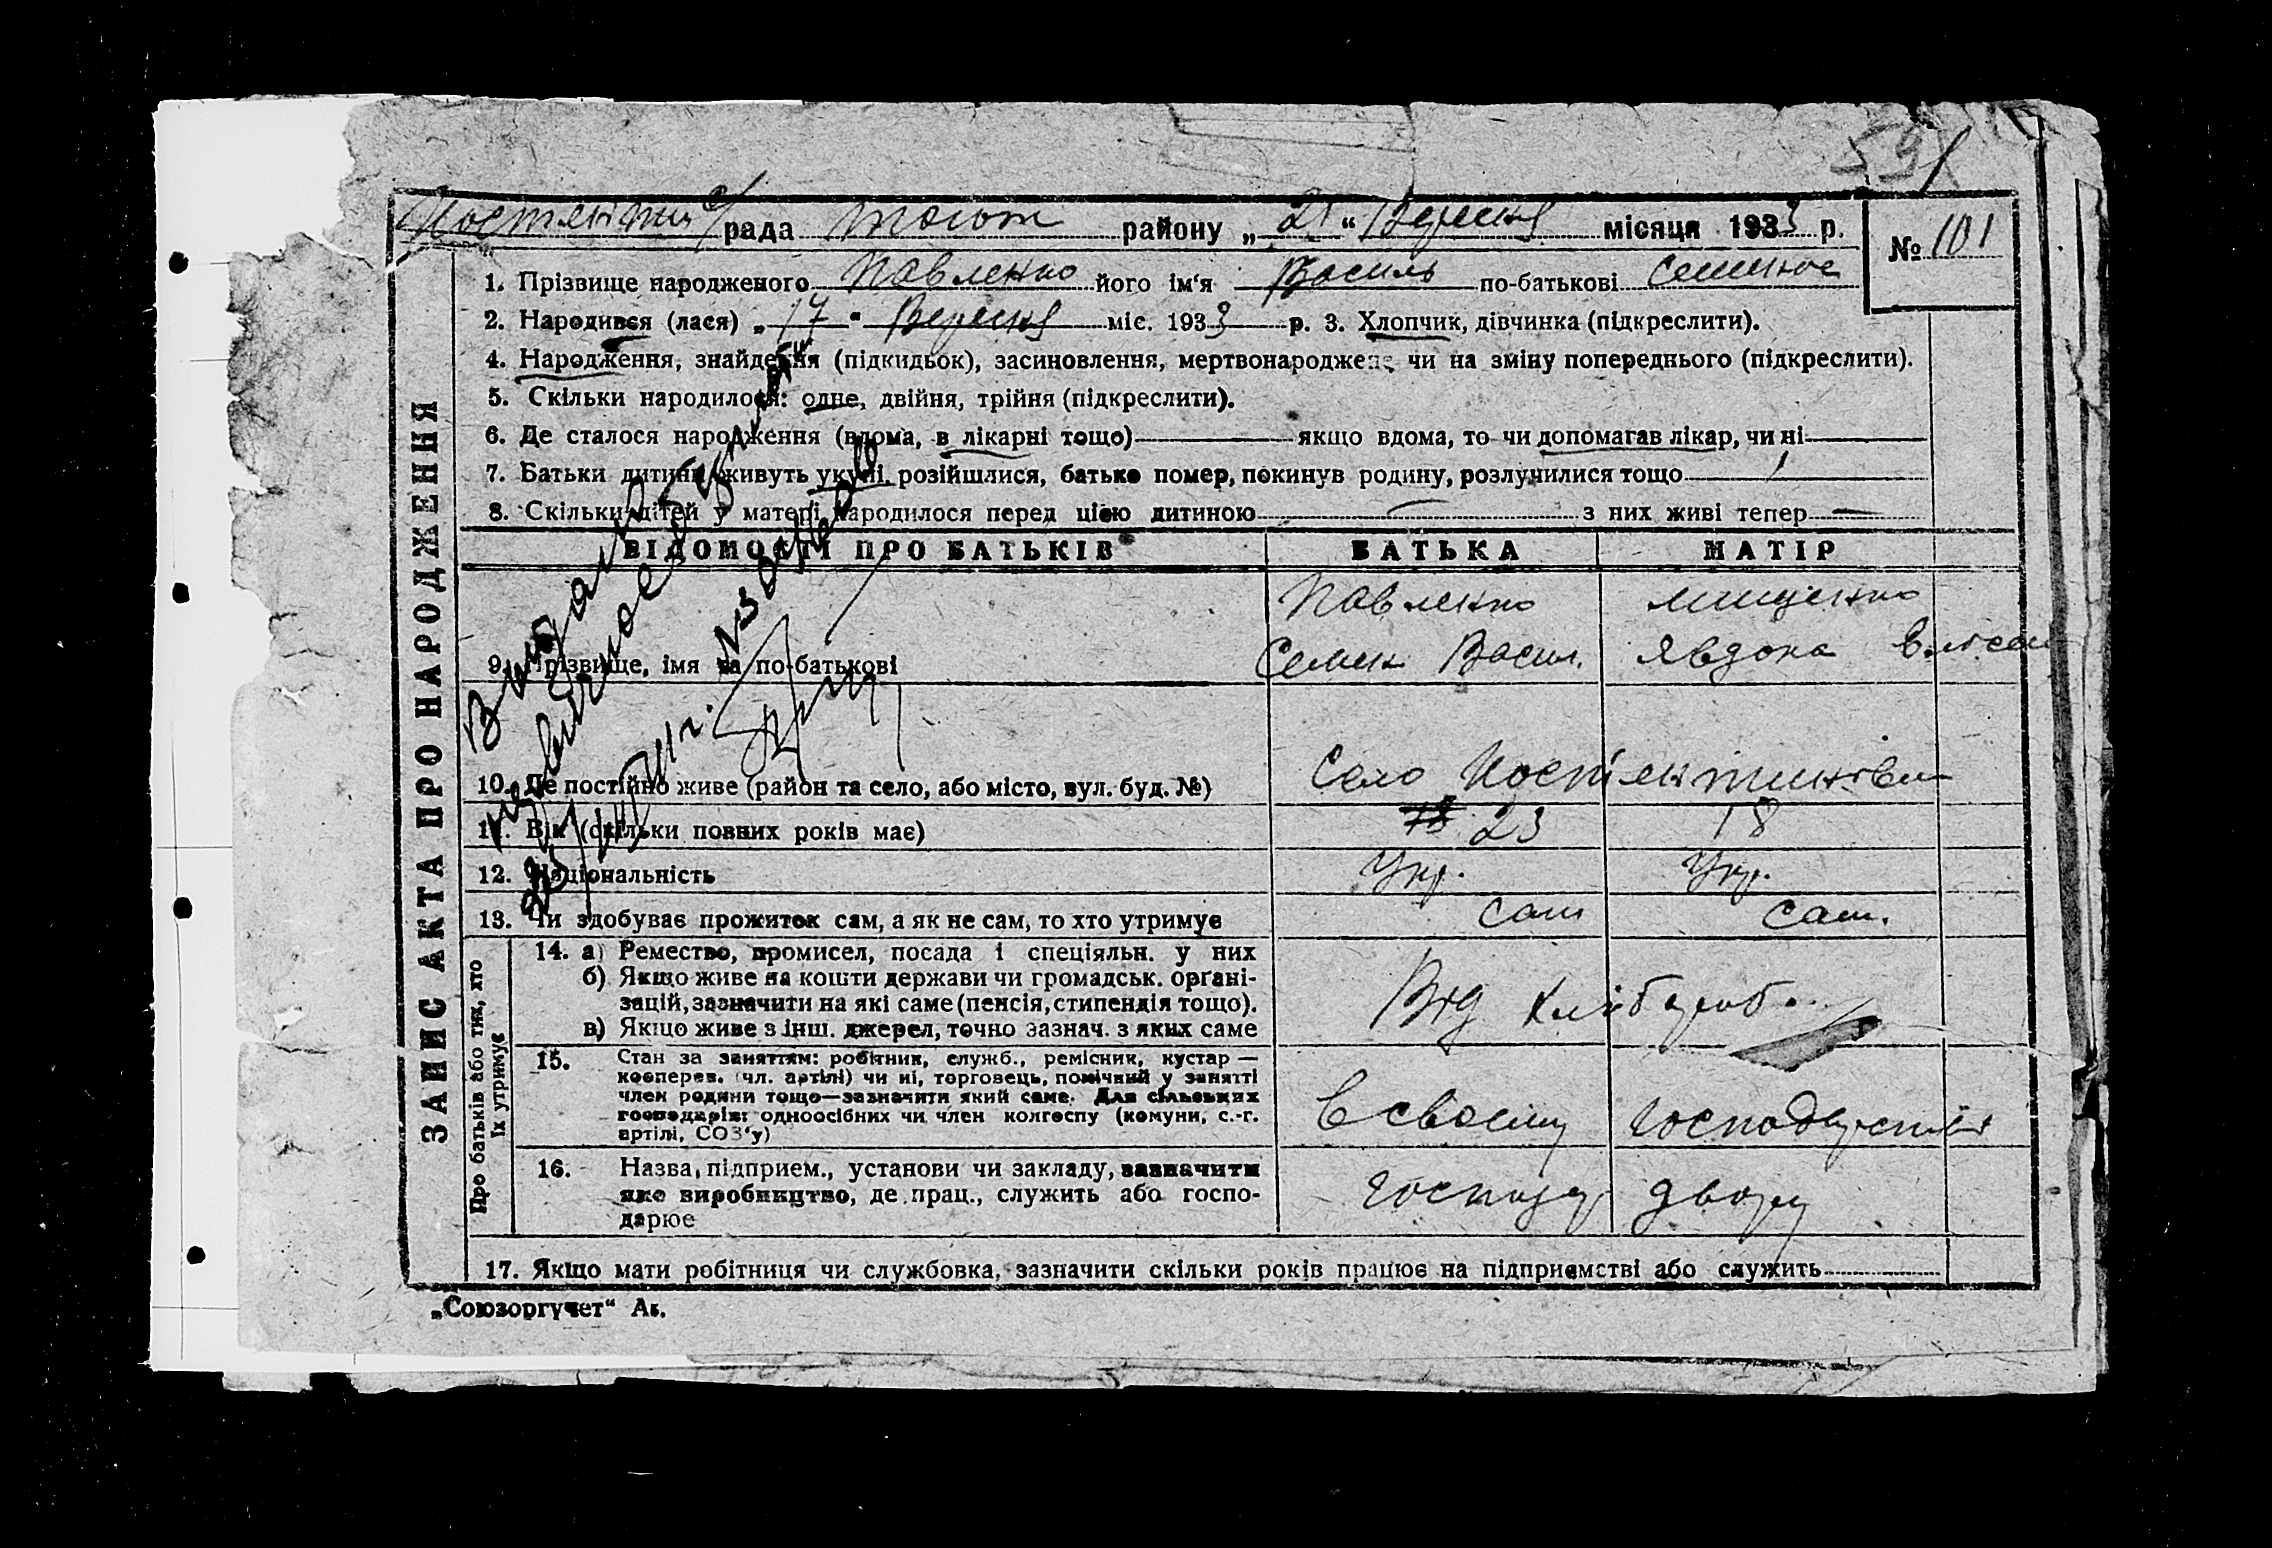 591
рада району „ 21 “ Вересня місяця 1933 р.
№ 101
1. Прізвище народженого Павленко його ім‘я Василь по-батькові Семенов
2. Народився (лася) „ 17 “ Вересня міс. 1933 р. 3. Хлопчик, дівчинка (підкреслити).
4. Народження, знайдення (підкидьок), засиновлення, мертвонароджене, чи на зміну попереднього (підкреслити).
5. Скільки народилося: одне, двійня, трійня (підкреслити).
6. Де сталося народження (вдома, в лікарні тощо) якщо вдома, то чи допомагав лікар, чи ні
7. Батьки дитини живуть укупі, розійшлися, батько помер, покинув родину, розлучилися тощо
8. Скільки дітей у матері народилося перед цією дитиною з них живі тепер
ВІДОМОСТИ ПРО БАТЬКІВ БАТЬКА МАТІР
Павленко Мищенко
9. Прізвище, імя та по-батькові Семен Васил. Явдоха Власов
10. Де постійно живе (район та село, або місто, вул. буд. №) Село Костянтинівка
11. Вік (скільки повних років має) 23 18
12. Національність Укр. Укр.
13. Чи здобуває прожиток сам, а як не сам, то хто утримує Сам Сам.
14. а) Ремество, промисел, посада і спеціяльн. у них
б) Якщо живе на кошти держави чи громадськ. орґані-
зацій, зазначити на які саме (пенсія, стипендія тощо).
в) Якщо живе з інш. джерел, точно зазнач. з яких саме
Від хлібороб.
15. Стан за заняттям: робітник, служб., ремісник, кустар —
кооперов. (чл. артілі) чи ні, торговець, помічний у занятті
член родини тощо—зазначити який саме. Для сільських
господарів: одноосібних чи член колгоспу (комуни, с.-г.
артілі, СОЗ‘у)
В своєму господарстві
16. Назва, підприєм., установи чи закладу, зазначити
яке виробництво, де прац., служить або госпо-
дарюе
двору
17. Якщо мати робітниця чи службовка, зазначити скільки років працює на підприємстві або служить
ЗАПИС АКТА ПРО НАРОДЖЕННЯ
Про батьків або тих, хто
їх утримує
„Союзоргучет“ Ак.